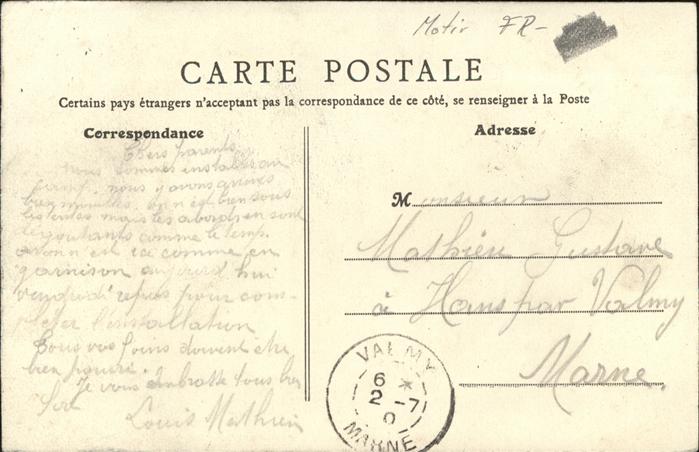 Motif FR-
CARTE POSTALE
Certains pays étrangers n'acceptant pas la correspondance de ce côté, se renseigner à la Poste
Correspondance
Chers parents
nous sommes installés au
nous y avons
on n'est bien sous
les tentes mais les abords en sont
dégoutants comme le temp.
est ici comme en
garnison aujourd'hui
vendredi repos pour com-
pléter l'installation
Tous vos foins doivent être
bien
Je vous embrasse tous bien
fort
Louis Mathieu
Adresse
Monsieur
Mathieu Gustave
à Hans par Valmy
Marne.
VALMY
6 *
2 -7
0
MARNE